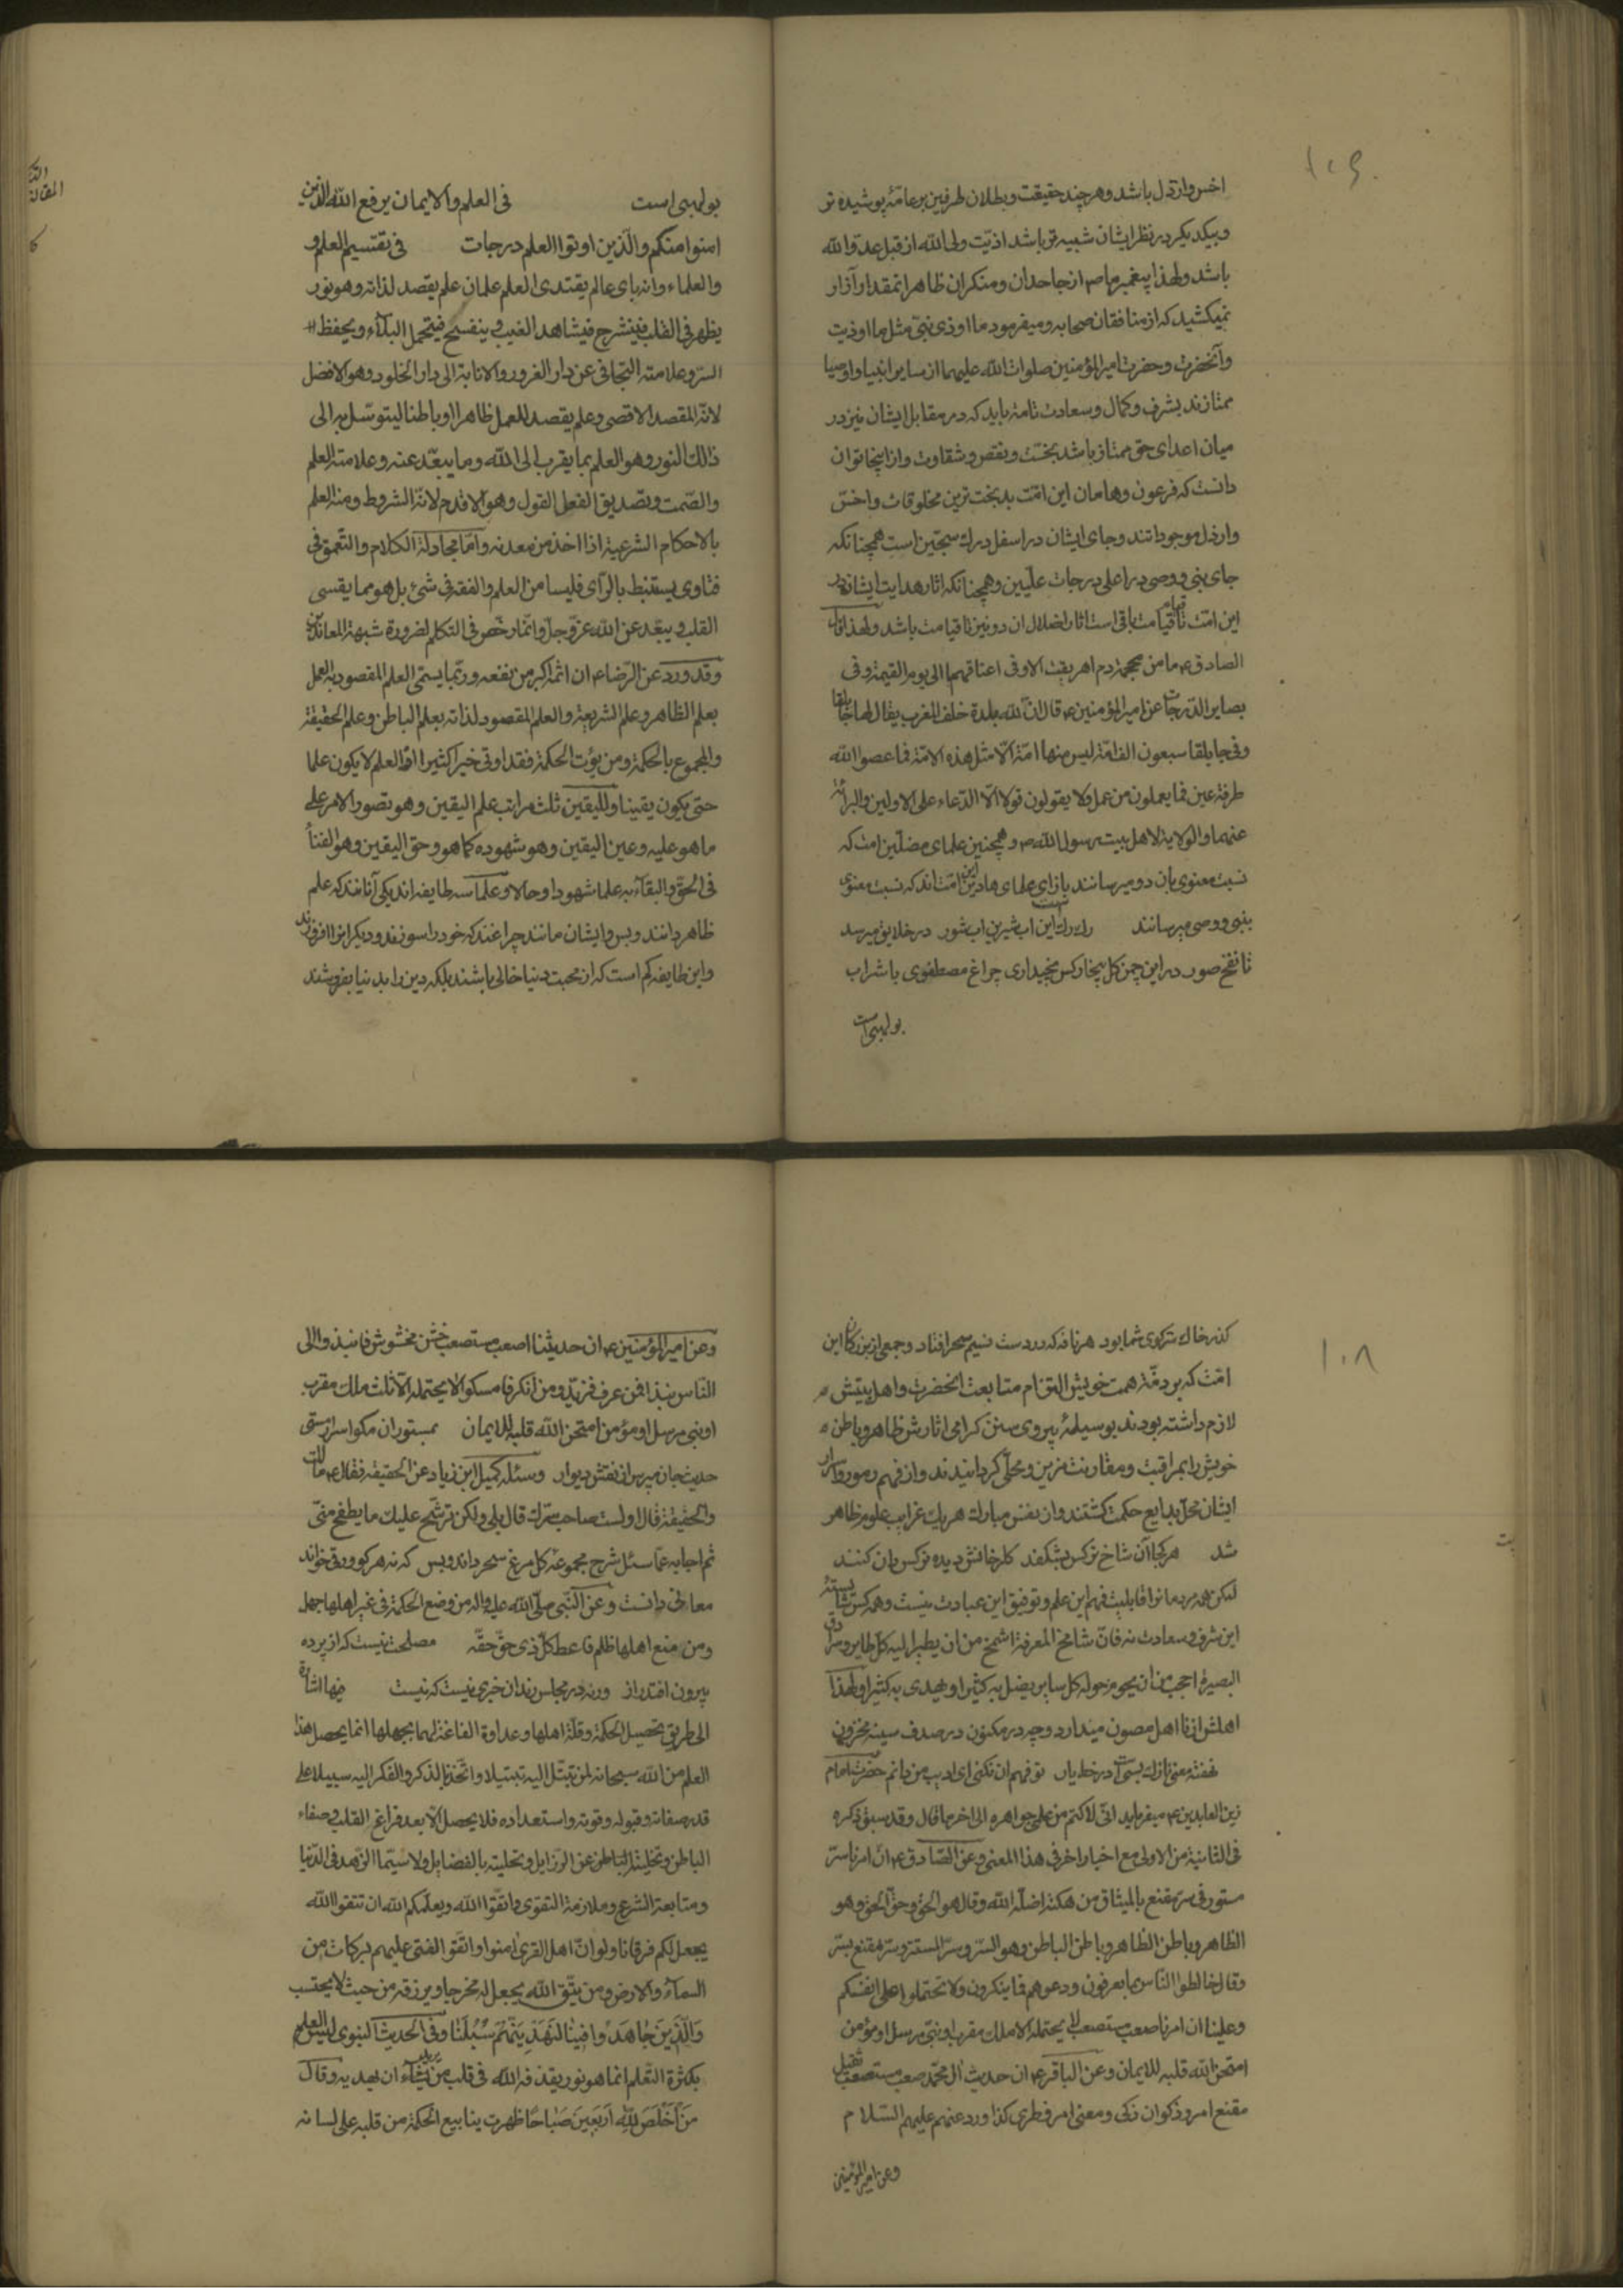 ۱۰۹
اخس وارذل باشد وهر چند حقیقت وبطلان طرفین بر عامّه پوشیده تر
وبیکدیکر در نظر ایشان شبیه تر باشد اذیّت ولی الله از قبل عدوّ الله
باشد ولهذا پیغمبر ما ص از جاحدان ومنکران ظاهر انمقدار آزار
نمیکشید که از منافقان صحابه ومیفرمود ما اوذی نبیّ مثل ما اوذیت
وآنحضرت وحضرت امیر المؤمنین صلوات الله علیهما از سایر انبیا واوصیا
ممتازند بشرف وکمال وسعادت تامه باید که در مقابل ایشان نیز در
میان اعدای حق ممتاز باشد بخسّت ونقص وشقاوت واز اینجا توان
دانست که فرعون وهامان این امّت بدبخت ترین مخلوقات واخسّ
وارذل موجوداتند وجای ایشان در اسفل درک سجّین است همچنانکه
جای نبی ووصی در اعلی درجات علّیین وهمچنانکه اثار هدایت ایشان در
این امّت تا قیام قیامت باقی است اثار اضلال ان دو نیز تا قیامت باشد ولهذا قال
الصادق ع ما من محجمة دم اهریقت الا وفی اعناقهما الی یوم القیمة وفی
بصایر الدّرجات عن امیر المؤمنین ع قال انّ لله بلدة خلف المغرب یقال لها جابلقا
وفی جابلقا سبعون الف امّة لیس منها امّة الّا مثل هذه الامّة فما عصوا الله
طرفة عین فما یعملون من عمل ولا یقولون قولا الّا الدّعاء علی الاولین والبرائة
عنهما والولایة لاهل بیت رسول الله ص وهمچنین علمای مضلّین امت که
نسبت معنوی بان دو میرسانند بازای علمای هادین این امّت اند که نسبت معنوی
بنبی ووصی میرسانند رک رکست این اب شیرین اب شور در خلایق میرسد
تا نفخ صور در این چمن کل بیخار کس نچید اری چراغ مصطفوی با شرار
بولهبی است
بولهبی است فی العلم والایمان یرفع الله الذین
امنوا منکم والّذین اوتوا العلم درجات فی تقسیم العلم و
والعلماء وانه بای عالم یقتدی العلم علمان علم یقصد لذاته وهو نور
یظهر فی القلب فینشرح فیشاهد الغیب وینفسح فیتحمل البلاء ویحفظ
السرّ وعلامته التجافی عن دار الغرور والانابة الی دار الخلود وهو الافضل
لانّه المقصد الاقصی وعلم یقصد للعمل ظاهرا او باطنا لیتوسّل به الی
ذالک النور وهو العلم بما یقرب الی الله وما یبعّد عنه وعلامته العلم
والصّمت وتصدیق الفعل القول وهو الاقدم لانّه الشروط ومنه العلم
بالاحکام الشرعیة اذا اخذ من معدنه وامّا مجادلة الکلام والتّعمق فی
فتاوی یستنبط بالرّای فلیسا من العلم والفقه فی شئ بل هو مما یقسی
القلب ویبعّد عن الله عزّ وجلّ وانّما رخّص فی التکلم لضرورة شبهة المعاندین
وقد ورد عن الرّضا ع ان اثمه اکبر من نفعه وربّما یسمّی العلم المقصود به العمل
بعلم الظاهر وعلم الشریعة والعلم المقصود لذاته بعلم الباطن وعلم الحقیقة
والمجموع بالحکمة ومن یؤت الحکمة فقد اوتی خیرا کثیرا العلم لا یکون علما
حتی یکون یقینا وللیقین ثلث مراتب علم الیقین وهو تصور الامر علی
ما هو علیه وعین الیقین وهو شهوده کما هو وحق الیقین وهو الفناء
فی الحقّ والبقآء به علما شهودا وحالا وعلما سه طایفه اند یکی آنانند که علم
ظاهر دانند وبس وایشان مانند چراغند که خود را سوزند ودیکرانرا افروزند
واین طایفه کم است که از محبت دنیا خالی باشند بلکه دین را بدنیا بفروشند
المقالة
۱۰۸
کذر خاک سر کوی شما بود هر نافه که در دست نسیم سحر افتاد وجمعی از بزرکان این
امّت که بر ذمّه همت خویش التزام متابعت انحضرت واهل بیتش
لازم داشته بودند بوسیلهٔ پیروی سنن کرامی اثارش ظاهر وباطن
خویش را بمراقبت ومقارنت مزین ومحلّی کردانیدند واز فهم رموز واسرار
ایشان محل بدایع حکمت کشتند واز نفس مبارک هر یک غرایب علوم ظاهر
شد هر کجا آن شاخ نرکس بشکفد کلرخانش دیده نرکس دان کنند
لیکن همه مردمانرا قابلیت فهم این علم وتوفیق این عبادت نیست وهمه کس شایسته
این شرف وسعادت نه فانّ شامخ المعرفة اشمخ من ان یطیر الیه کلّ طایر وسرادق
البصیرة احجب من ان یحوم حوله کل سایر یضل به کثیرا ویهدی به کثیرا ولهذا
اهلش از نا اهل مصون میدارد وچو در مکنون در صدف سینه مخزون
نهفته معنی نازک بسی است در خط یار تو فهم ان نکنی ای ادیب من دانم حضرت امام
زین العابدین ع میفرماید انّی لاکتم من علمی جواهره الی اخر ما قال وقد سبق ذکره
فی الثانیة من الاولی مع اخبار اخر فی هذا المعنی وعن الصّادق ع انّ امرنا سرّ
مستور فی سرّ مقنع بالمیثاق من هتکه اضلّه الله وقال هو الحق وحقّ الحق وهو
الظاهر وباطن الظاهر وباطن الباطن وهو السرّ وسرّ المستتر وسرّ مقنع بسرّ
وقال خالطوا الناس بما یعرفون ودعوهم فما ینکرون ولا تحتملوا علی انفسکم
وعلینا ان امرنا صعب مستصعب لا یحتمله الا ملک مقرب او نبیّ مرسل او مؤمن
امتحن الله قلبه للایمان وعن الباقر ع ان حدیث ال محمّد صعب مستصعب ثقیل
مقنع امرد ذکوان زکی ومعنی امرد فطری کذا ورد عنهم علیهم السّلام
وعن امیر المؤمنین
وعن امیر المؤمنین ع ان حدیثنا صعب مستصعب خشن مخشوش فانبذوا الی
الناس نبذا فمن عرف فزیدوه ومن انکر فامسکوا لا یحتمله الّا ثلث ملک مقرب
او نبی مرسل او مؤمن امتحن الله قلبه للایمان بمستوران مکو اسرار مستی
حدیث جان مپرس از نقش دیوار وسئله کمیل ابن زیاد عن الحقیقة فقال ع ما لک
والحقیقة قال اولست صاحب سرّک قال بلی ولکن ترشّح علیک ما یطفح منّی
ثم اجابه عمّا سئل شرح مجموعهٔ کل مرغ سحر داند وبس که نه هر کو ورقی خواند
معانی دانست وعن النّبی صلّی الله علیه واله من وضع الحکمة فی غیر اهلها جهل
ومن منع اهلها ظلم فاعط کلّ ذی حقّ حقّه مصلحت نیست که از پرده
بیرون افتد راز ورنه در مجلس رندان خبری نیست که نیست فیها اشارة
الی طریق تحصیل الحکمة وقلّة اهلها وعداوة الفاغة لهما بجهلها انما یحصل هذا
العلم من الله سبحانه لمن تبتّل الیه تبتیلا واتّخذ بالذکر والفکر الیه سبیلا علی
قدر صفائه وقبوله وقوته واستعداده فلا یحصل الّا بعد فراغ القلب وصفاء
الباطن وتخلیة الباطن عن الرّزایل وتحلیته بالفضایل ولا سیّما الزّهد فی الدّنیا
ومتابعة الشرع وملازمة التقوی واتقّوا الله ویعلّمکم الله ان تتقوا الله
یجعل لکم فرقانا ولو انّ اهل القری امنوا واتّقوا لفتحنا علیهم برکات من
السمآء والارض ومن یتّق الله یجعل له مخرجا ویرزقه من حیث لا یحتسب
وَالَّذینَ جاهَدُوا فینا لَنَهْدِیَنَّهُمْ سُبُلَنا وفی الحدیث النبوی لیس العلم
بکثرة التّعلم انما هو نور یقذفه الله فی قلب من یرید ان یهدیه وقال
مَنْ اَخْلَصَ لِلّهِ اَرْبَعینَ صَباحًا ظهرت ینابیع الحکمة من قلبه علی لسانه